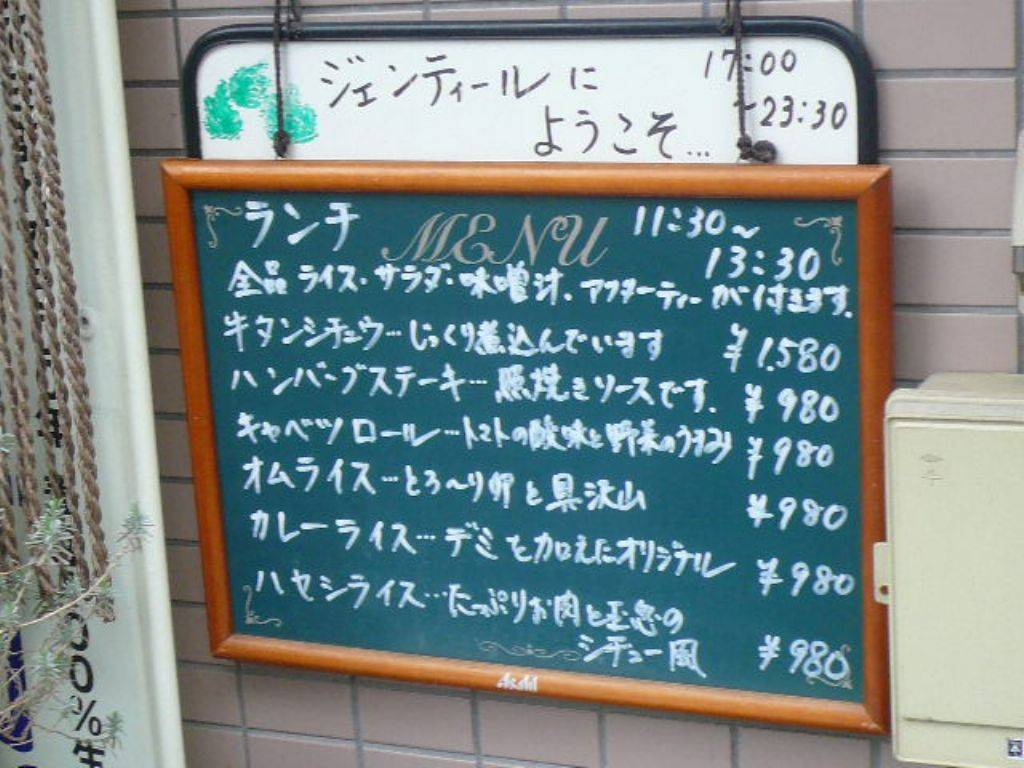 ジェンティールに 17:00
ようこそ… ~23:30
ランチ MENU 11:30~
13:30
全品 ライス・サラダ・味噌汁、アフターティーが付きます。
牛タンシチュウ…じっくり煮込んでいます ¥1.580
ハンバーグステーキ…照焼きソースです. ¥980
キャベツロール…トマトの酸味と野菜のうまみ ¥980
オムライス…とろ〜り卵と具沢山 ¥980
カレーライス…デミを加えたオリジナル ¥980
ハヤシライス…たっぷりお肉と玉葱の
シチュー風 ¥980
Asahi
00%生